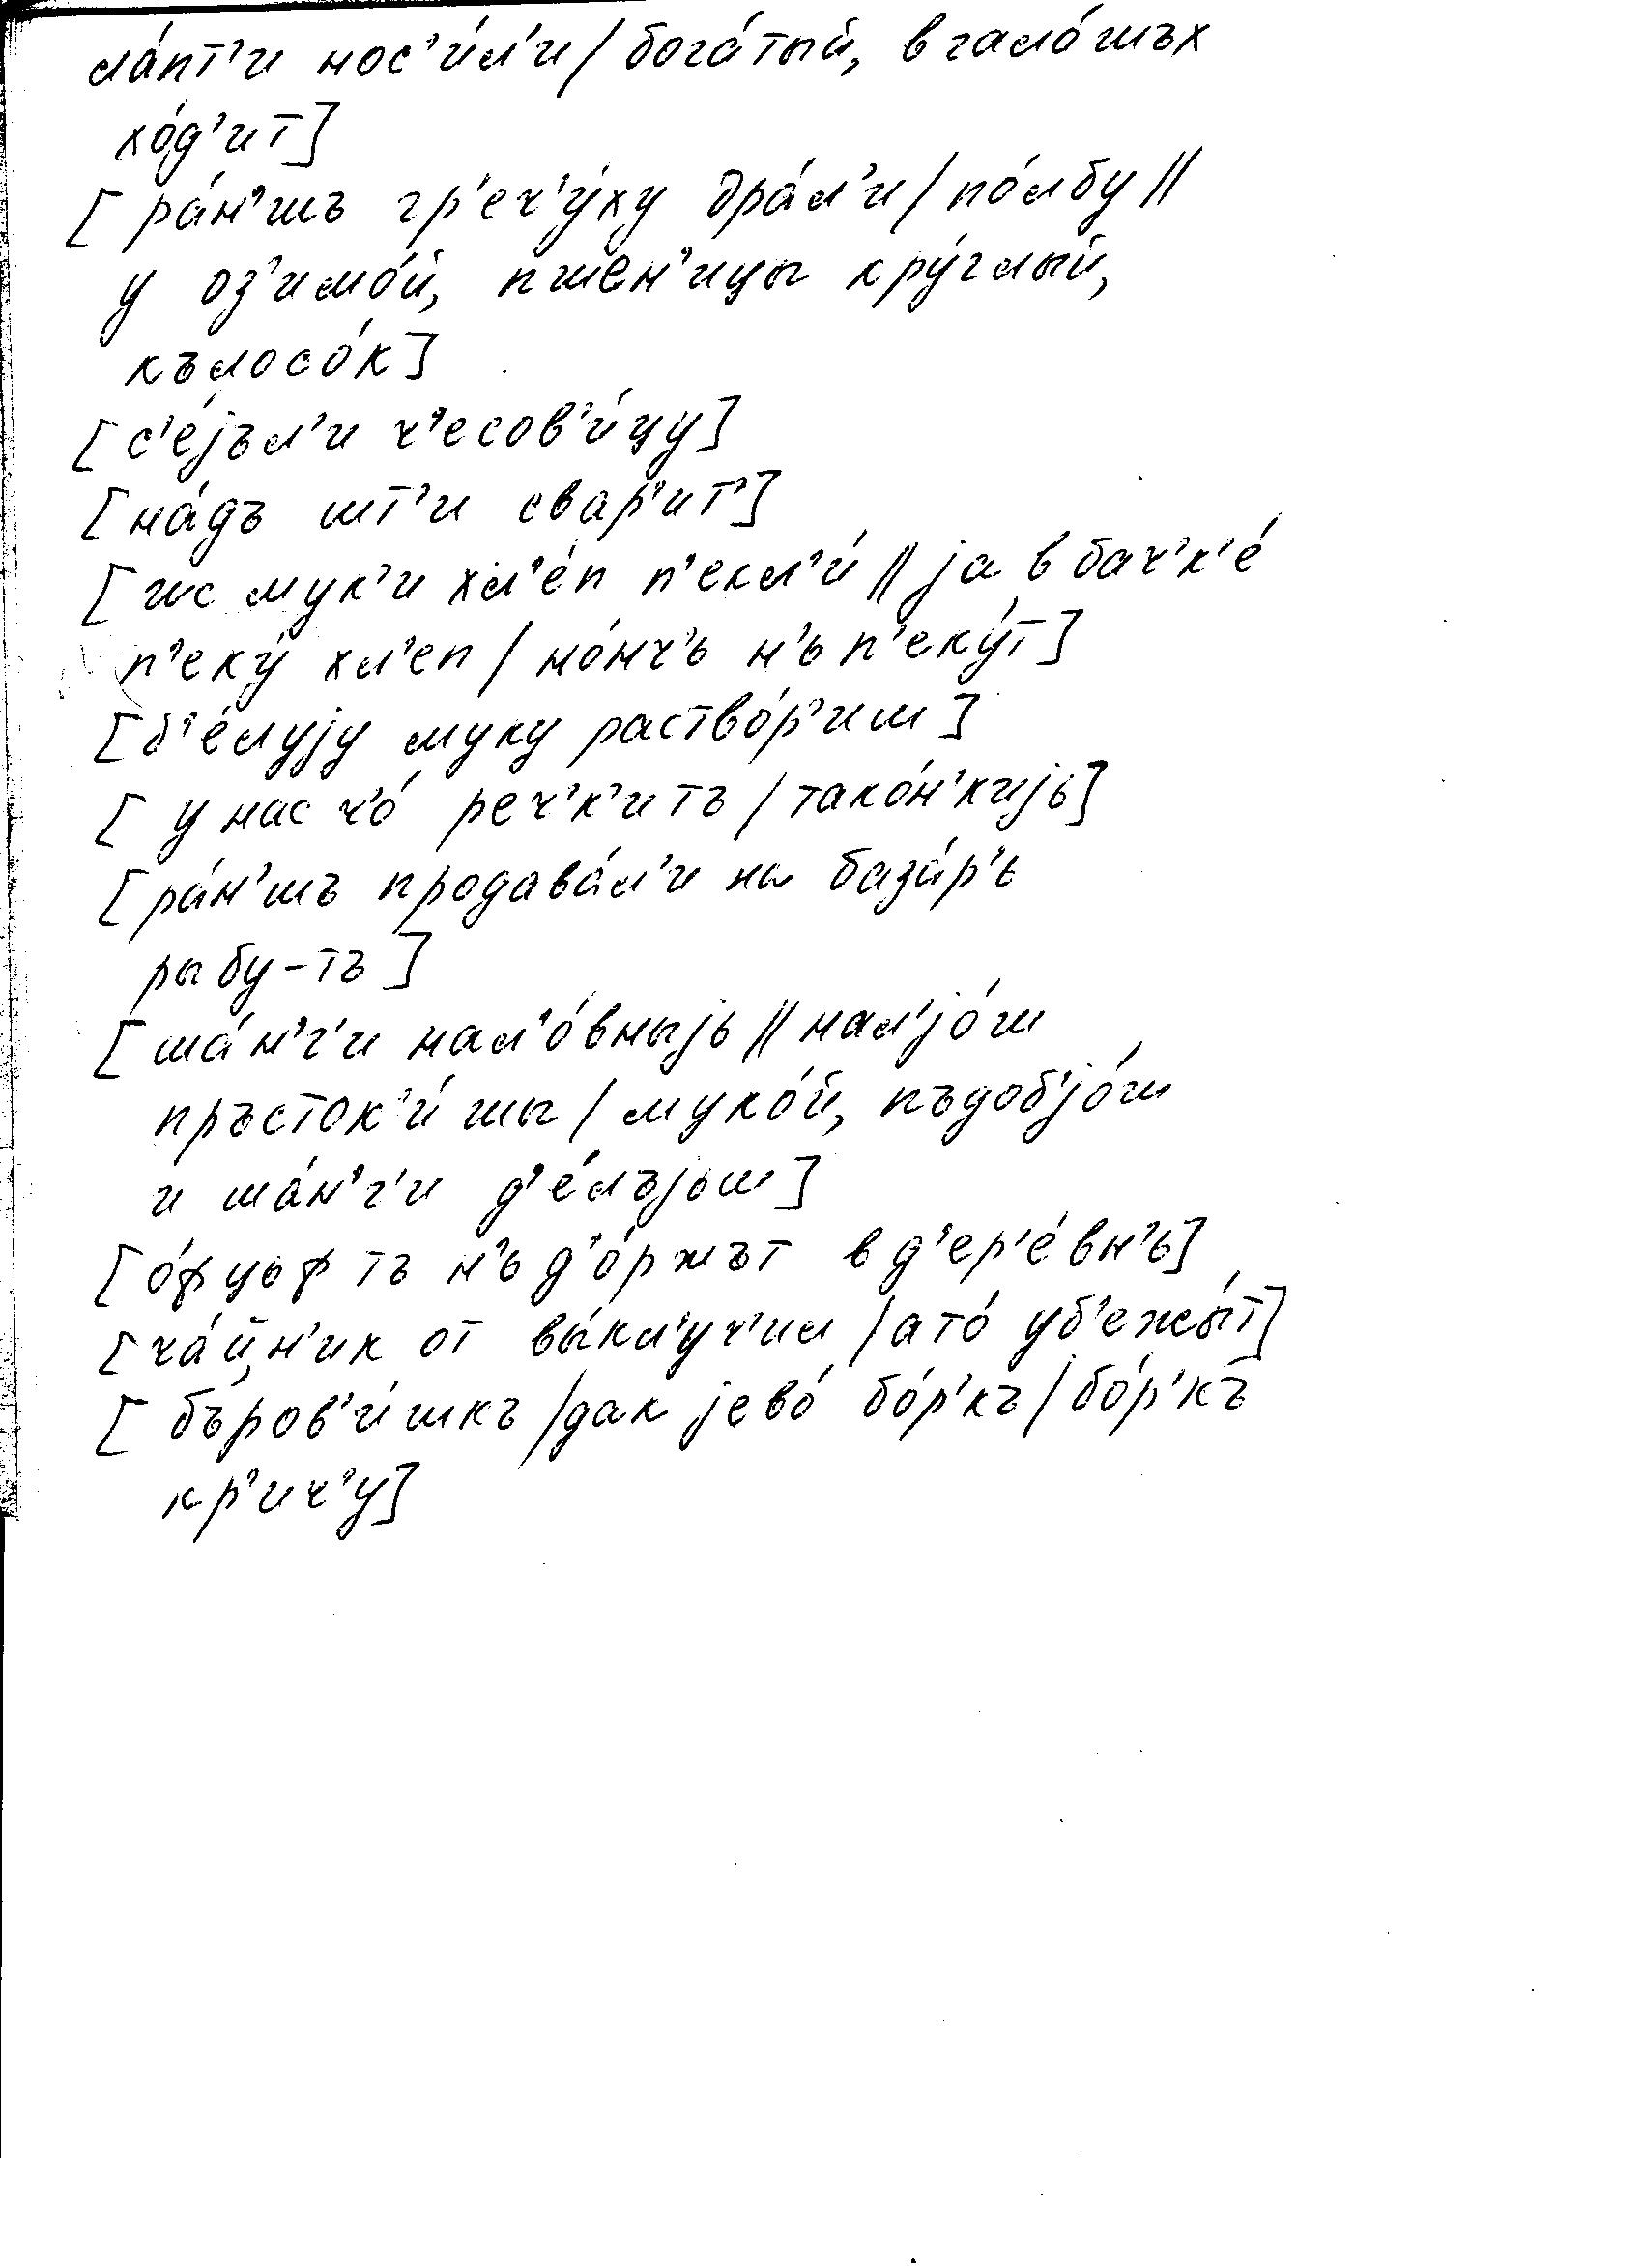 ла́пт'и нос'и́л'и / бога́тый, в гало́шъх
хо́д'ит]
[ ра́н'шъ гр'еч'у́ху дра́л'и / по́лбу //
у оз'имо́й, пшен'ицы кру́глый,
кълосо́к]
[ с'е́јъл'и ч'есов'и́цу]
[ на́дъ шт'и свар'ит']
[ ис мук'и хл'е́п п'екл'и́ // ја в бач'к'е́
п'еку́ хл'еп / но́нч'ь н'ь п'еку́т]
[ б'е́лују муку раство́р'иш ]
[ у нас ч'о́ реч'к'и тъ / тако́н'кијь]
[ ра́н'шъ продава́л'и на база́р'ь
рыбу-тъ ]
[ ша́н'г'и нал'о́вныјь // нал'јо́ш
пръсток'и́шы / муко́й, пъдоб'јо́ш
и ша́н'г'и д'е́лъјьш ]
[ о́фцьф тъ н'ь д'о́ржът в д'ер'е́вн'ь]
[ ча́йн'ик от вы́кл'уч'ил / а то́ уб'ежы́т]
[ бъров'и́шкъ / дак јево́ бо́р'къ / бо́р'къ
кр'ич'у]